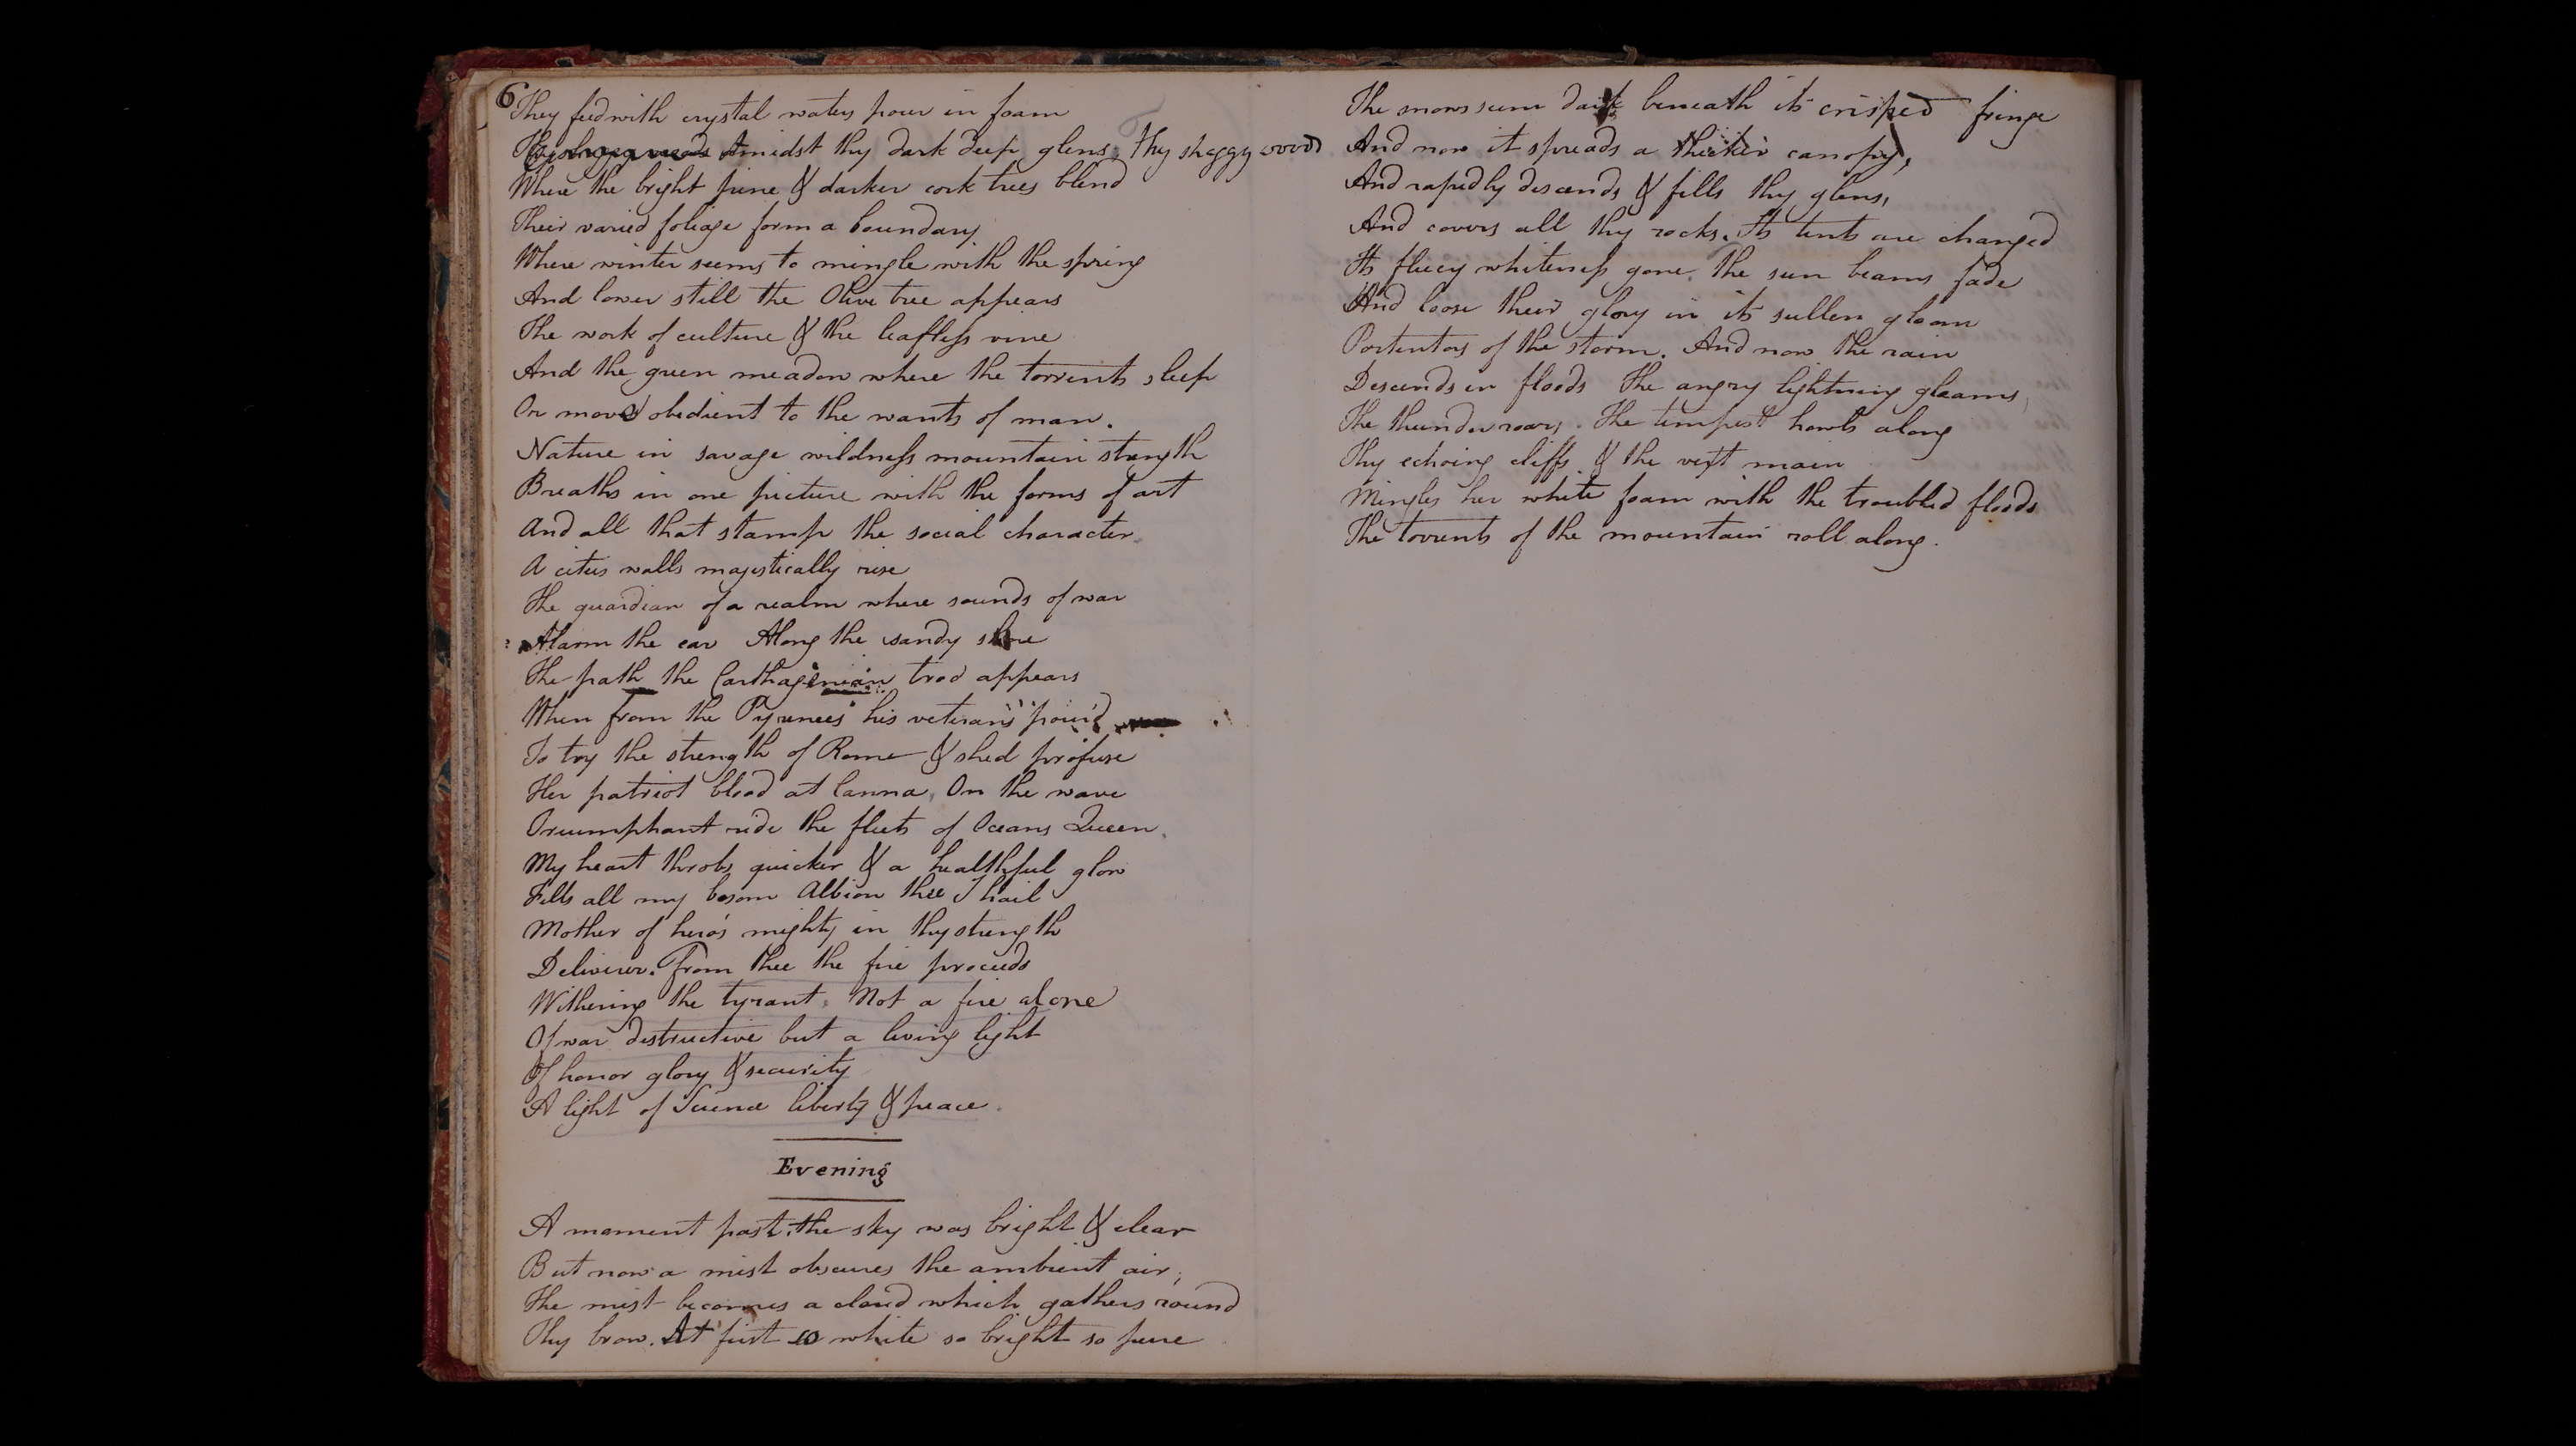 6
They fed with crystal waters pour in foam
Amidst thy dark deep glens, thy shaggy woods
Where the bright pine & darker cork trees blend
Their varied foliage form a boundary
Where winter seems to mingle with the spring
And lower still the Olive tree appears
The work of culture & the leafless vine
And the green meadow where the torrents sleep
Or move obedient to the wants of man.
Nature in savage wildness mountain strength
Breaths in one picture with the forms of art
And all that stamp the social character
A cities walls majestically rise
The guardian of a realm where sounds of war
Alarm the ear Along the sandy shore
The path the Carthagenian trod appears
When from the Pyrenees his veterans pour'd
To try the strength of Rome & shed profuse
Her patriot blood at Canna, On the wave
Triumphant ride the fleets of Oceans Queen.
My heart throbs quicker & a healthful glow
Fills all my bosom Albion thee I hail
Mother of hero's mighty in thy strength
Deliverer. From thee the fire proceeds
Withering the tyrant. Not a fire alone
Of war destructive but a living light
Of honor glory & security
A light of Science liberty & peace.
Evening
A moment past. the sky was bright & clear
But now a mist obscures the ambient air,
The mist becomes a cloud which gathers round
Thy brow. At first so white so bright so pure
The snows seem dark beneath its crisped fringe
And now it spreads a thicker canopy,
And rapidly descends & fills thy glens,
And covers all thy rocks. Its tints are changed
Its fleecy whiteness gone, the sun beams fade
And loose their glory in its sullen gloom
Portentous of the storm. And now the rain
Descends in floods The angry lightning gleams
The thunder roars. The tempest howls along
Thy echoing cliffs & the vext main
Mingles her white foam with the troubled floods
The torrents of the mountain roll along.